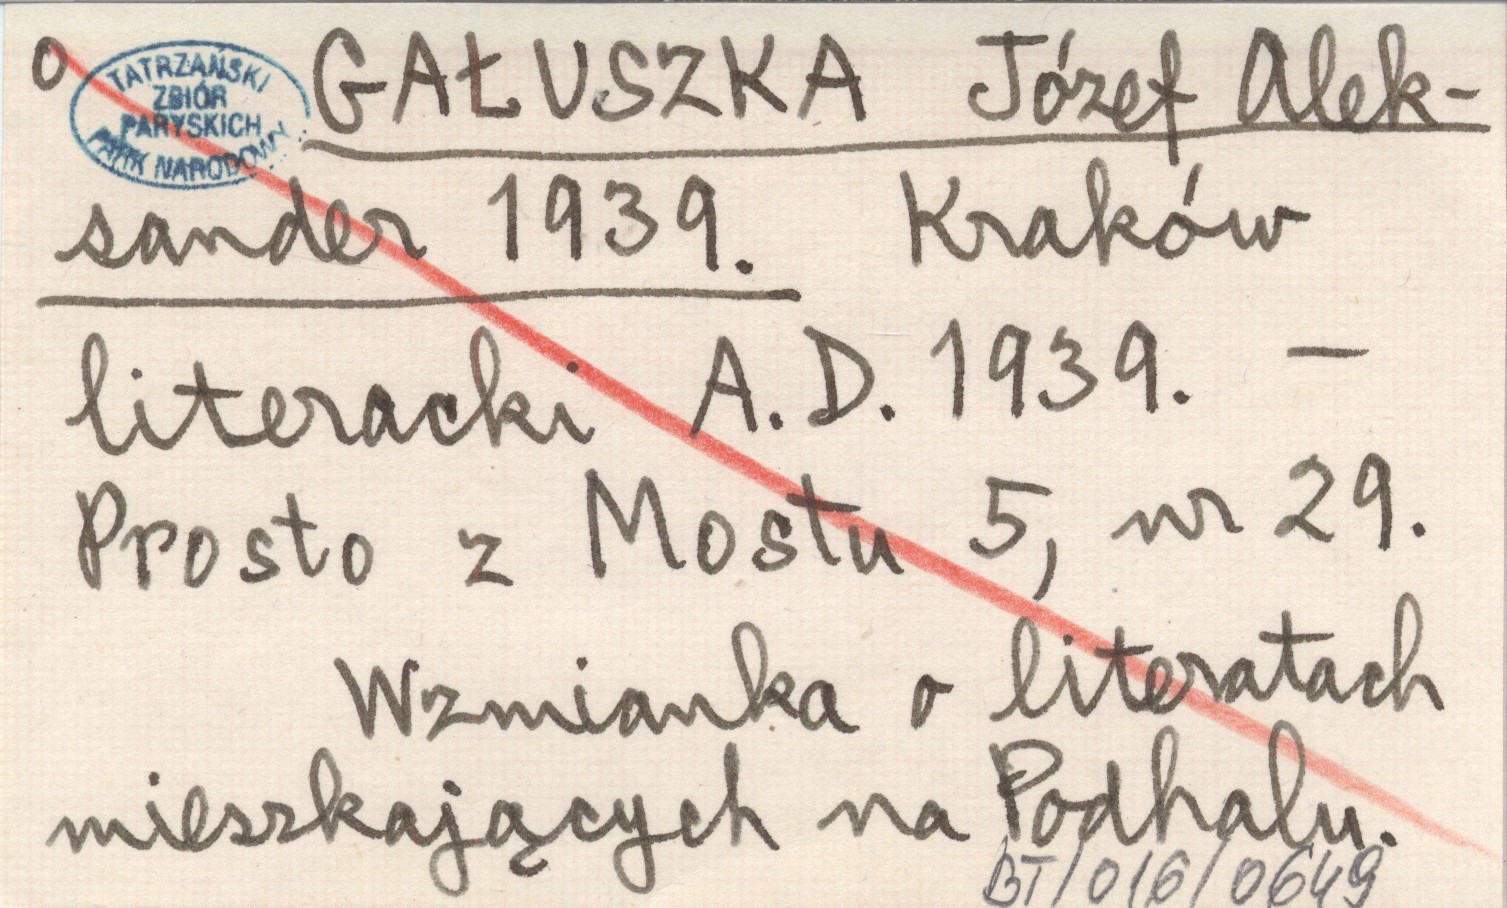 o
TATRZAŃSKI
ZBIÓR
PARYSKICH
PARK NARODOWY
GAŁUSZKA Józef Alek-
sander 1939. Kraków
literacki A.D. 1939. —
Prosto z Mostu 5, nr 29.
Wzmianka o literatach
mieszkających na Podhalu.
BT/016/0649